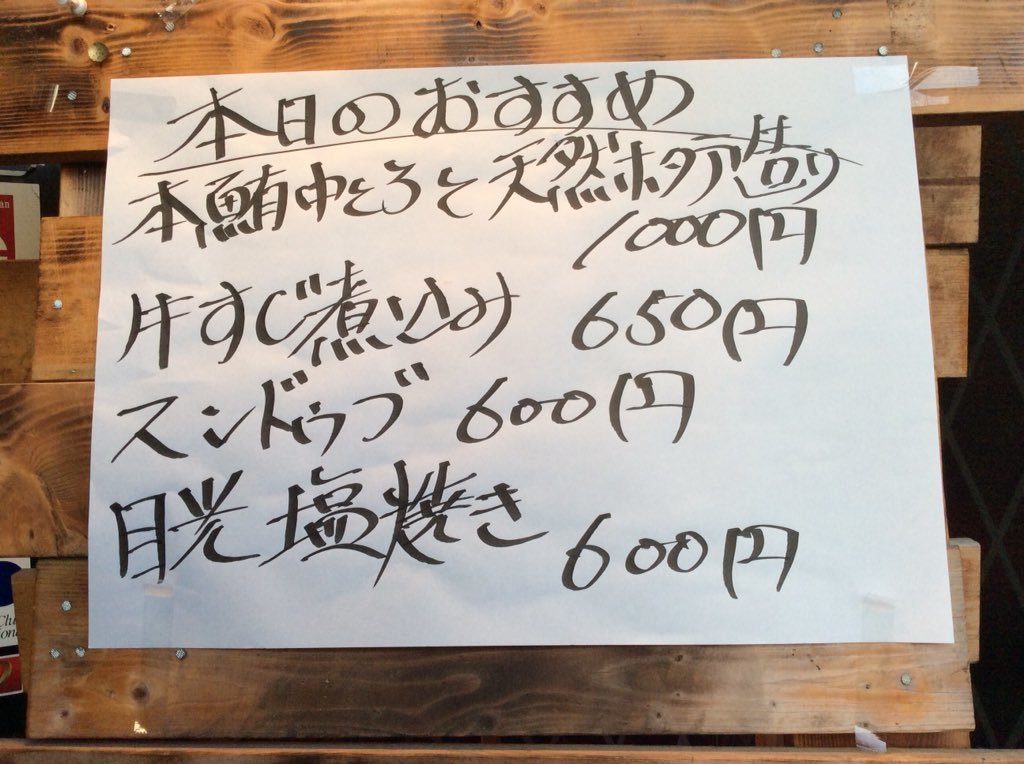 本日のおすすめ
本鮪中とろと天然ホタテ造り
1000円
牛すじ煮込み 650円
スンドゥブ 600円
目光塩焼き 600円